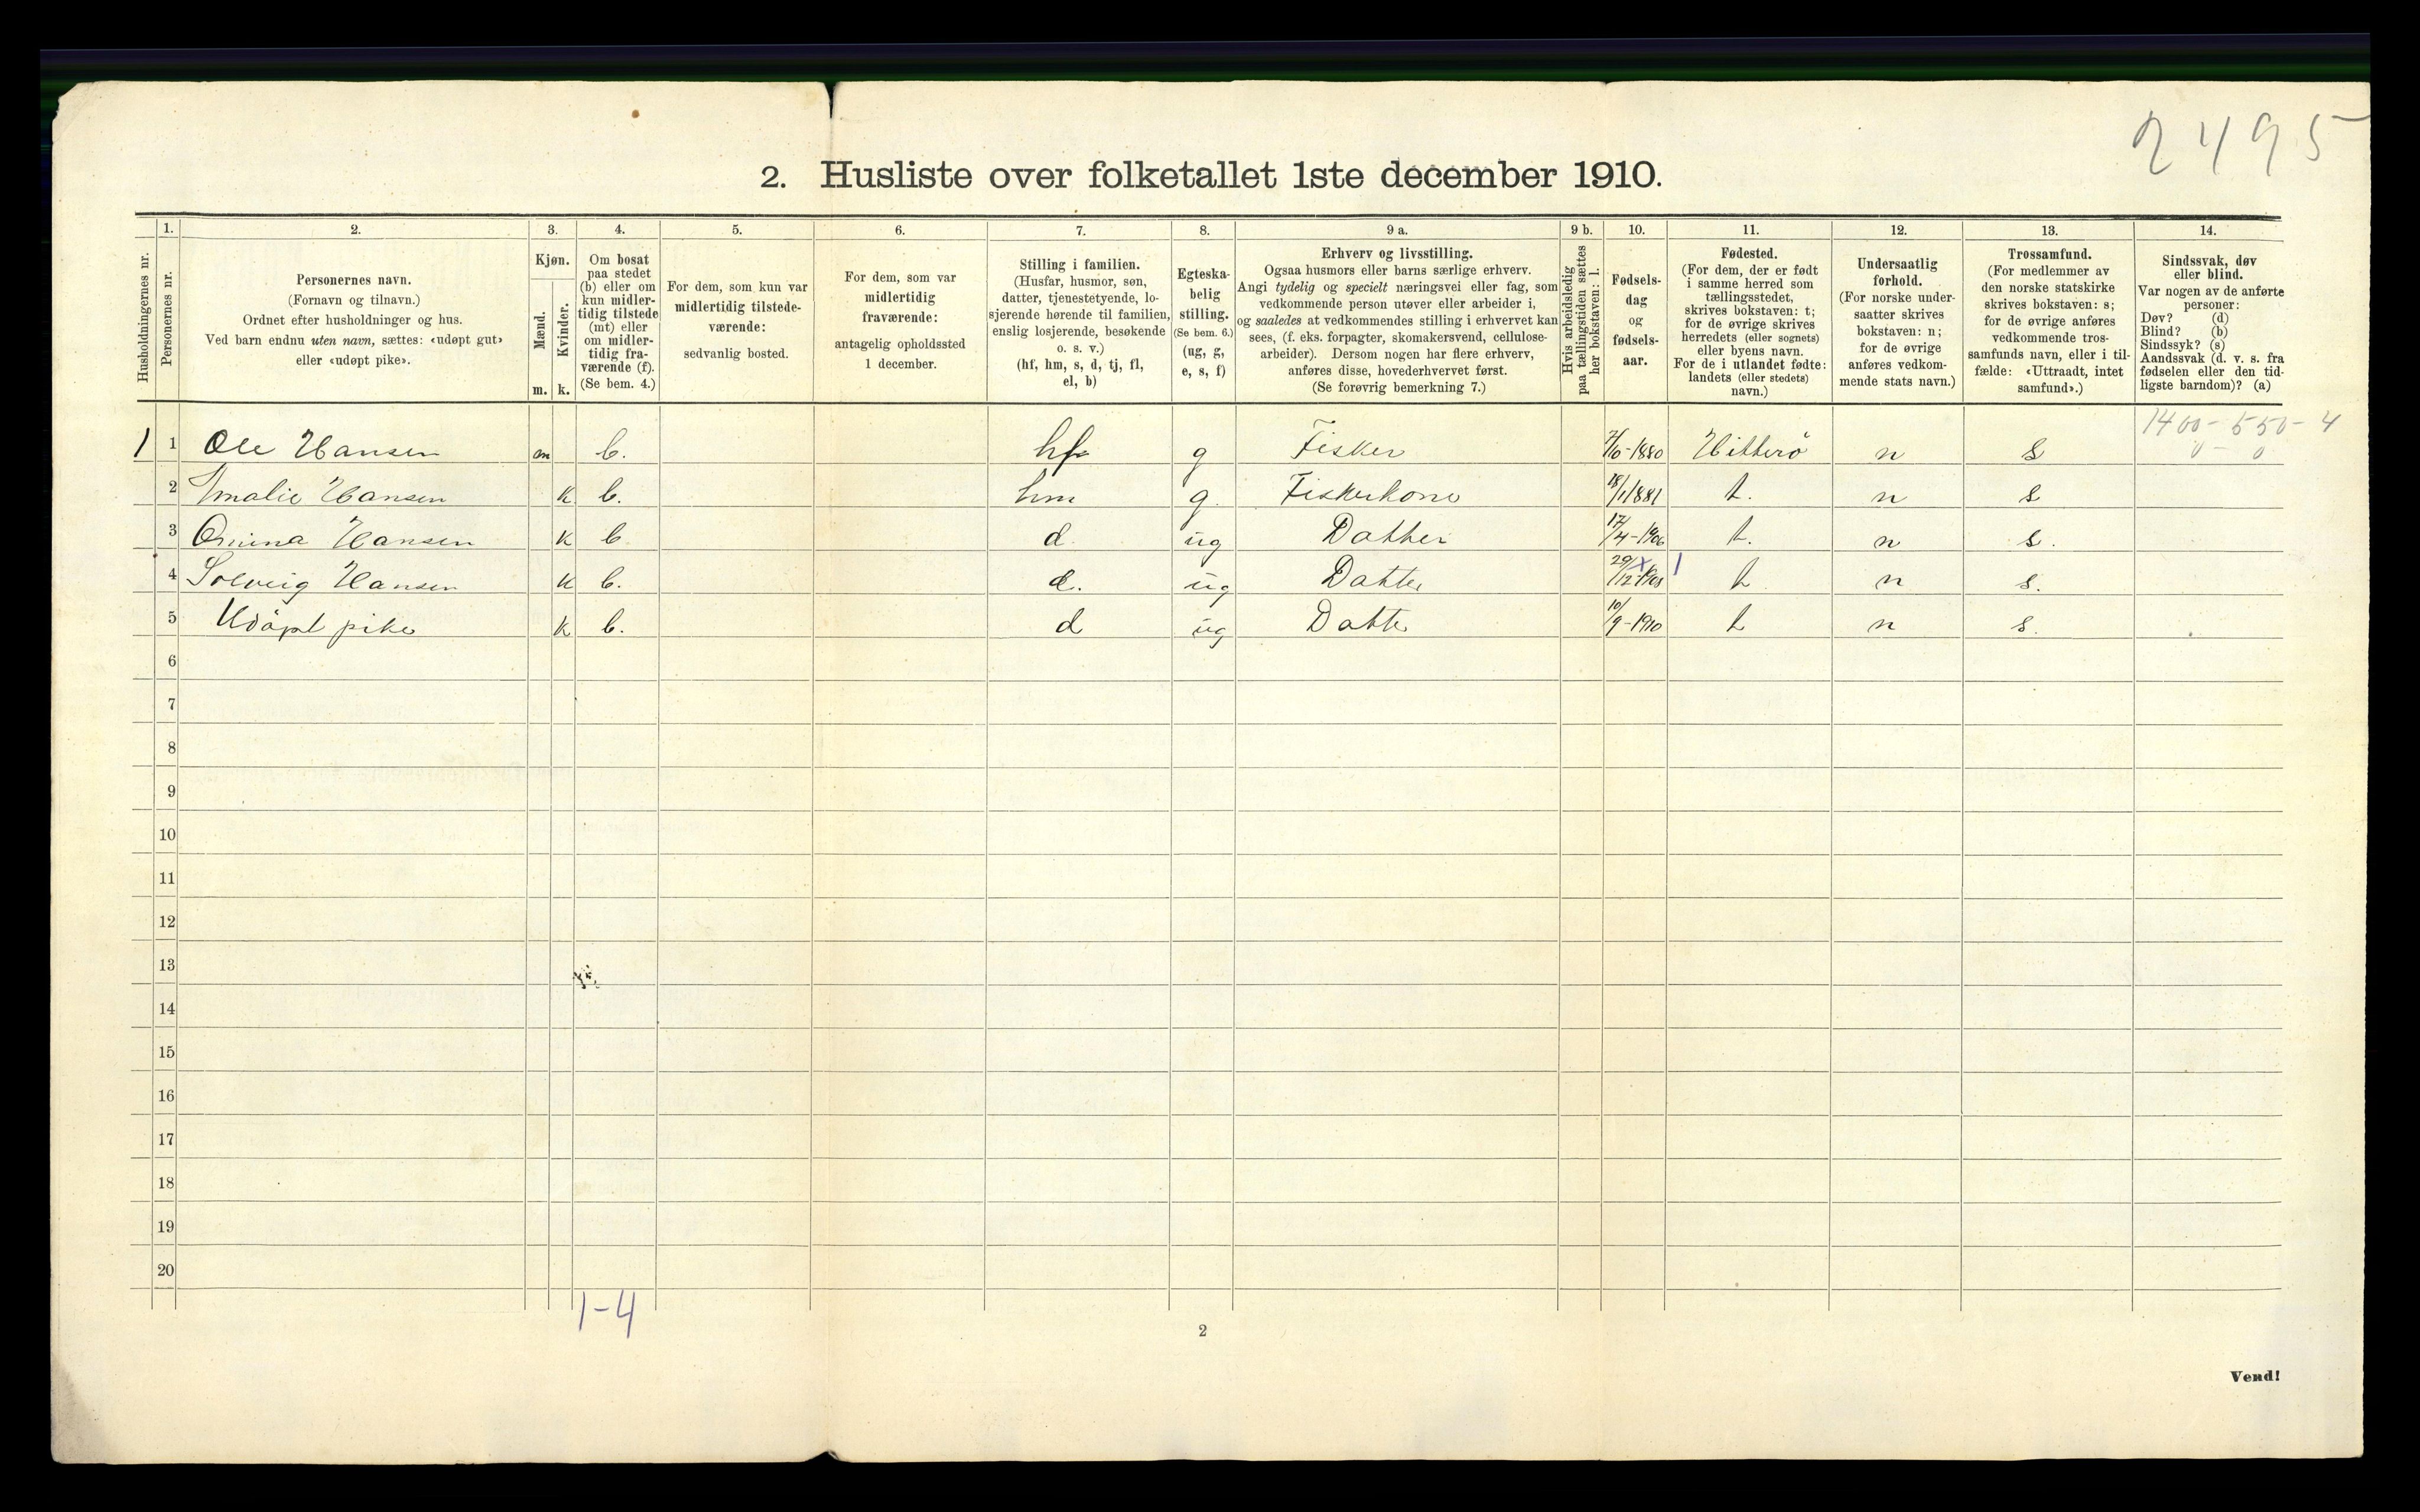 2495
2. Husliste over folketallet 1ste december 1910.
1. 2. 3. 4. 5. 6. 7. 8. 9 a. 9 b. 10. 11. 12. 13. 14.
Husholdningernes nr.
Personernes nr.
Personernes navn.
(Fornavn og tilnavn.)
Ordnet efter husholdninger og hus.
Ved barn endnu uten navn, sættes: «udøpt gut»
eller «udøpt pike».
Kjøn.
Mænd.
Kvinder.
m. k.
Om bosat
paa stedet
(b) eller om
kun midler-
tidig tilstede
(mt) eller
om midler-
tidig fra-
værende (f).
(Se bem. 4.)
For dem, som kun var
midlertidig tilstede-
værende:
sedvanlig bosted.
For dem, som var
midlertidig
fraværende:
antagelig opholdssted
1 december.
Stilling i familien.
(Husfar, husmor, søn,
datter, tjenestetyende, lo-
sjerende hørende til familien,
enslig losjerende, besøkende
o. s. v.)
(hf, hm, s, d, tj, fl,
el, b)
Egteska-
belig
stilling.
(Se bem. 6.)
(ug, g,
e, s, f)
Erhverv og livsstilling.
Ogsaa husmors eller barns særlige erhverv.
Angi tydelig og specielt næringsvei eller fag, som
vedkommende person utøver eller arbeider i,
og saaledes at vedkommendes stilling i erhvervet kan
sees, (f. eks. forpagter, skomakersvend, cellulose-
arbeider). Dersom nogen har flere erhverv,
anføres disse, hovederhvervet først.
(Se forøvrig bemerkning 7.)
Hvis arbeidsledig
paa tællingstiden sættes
her bokstaven: l.
Fødsels-
dag
og
fødsels-
aar.
Fødested.
(For dem, der er født
i samme herred som
tællingsstedet,
skrives bokstaven: t;
for de øvrige skrives
herredets (eller sognets)
eller byens navn.
For de i utlandet fødte:
landets (eller stedets)
navn.)
Undersaatlig
forhold.
(For norske under-
saatter skrives
bokstaven: n;
for de øvrige
anføres vedkom-
mende stats navn.)
Trossamfund.
(For medlemmer av
den norske statskirke
skrives bokstaven: s;
for de øvrige anføres
vedkommende tros-
samfunds navn, eller i til-
fælde: «Uttraadt, intet
samfund».)
Sindssvak, døv
eller blind.
Var nogen av de anførte
personer:
Døv? (d)
Blind? (b)
Sindssyk? (s)
Aandssvak (d. v. s. fra
fødselen eller den tid-
ligste barndom)? (a)
1400-550-4
0 - 0
1 1 Ole Hansen m b. hf g Fisker Hitterö n s
2 Amalie Hansen k b. hm g. Fiskerkone 18/1 1881 t. n s
3 Hansen k b d. ug Datter 17/4-1906 t. n s.
4 Solveig Hansen k b. d. ug Datter 29/12 1908 1 t n s.
5 Udöpt pike k b. d ug Datter 10/9-1910 t n s.
6
7
8
9
10
11
12
13
14
15
16
17
18
19
20
1-4
2
Vend!